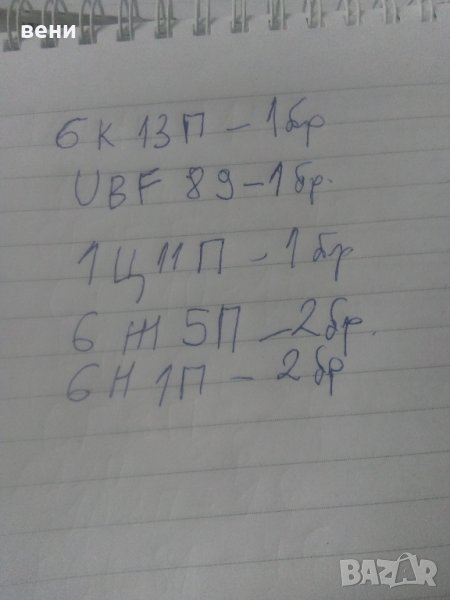 вени
6К 13П – 1бр
UBF 89 – 1бр.
1Ц 11П – 1бр
6Ж 5П – 2бр.
6Н 1П – 2бр
BAZAR